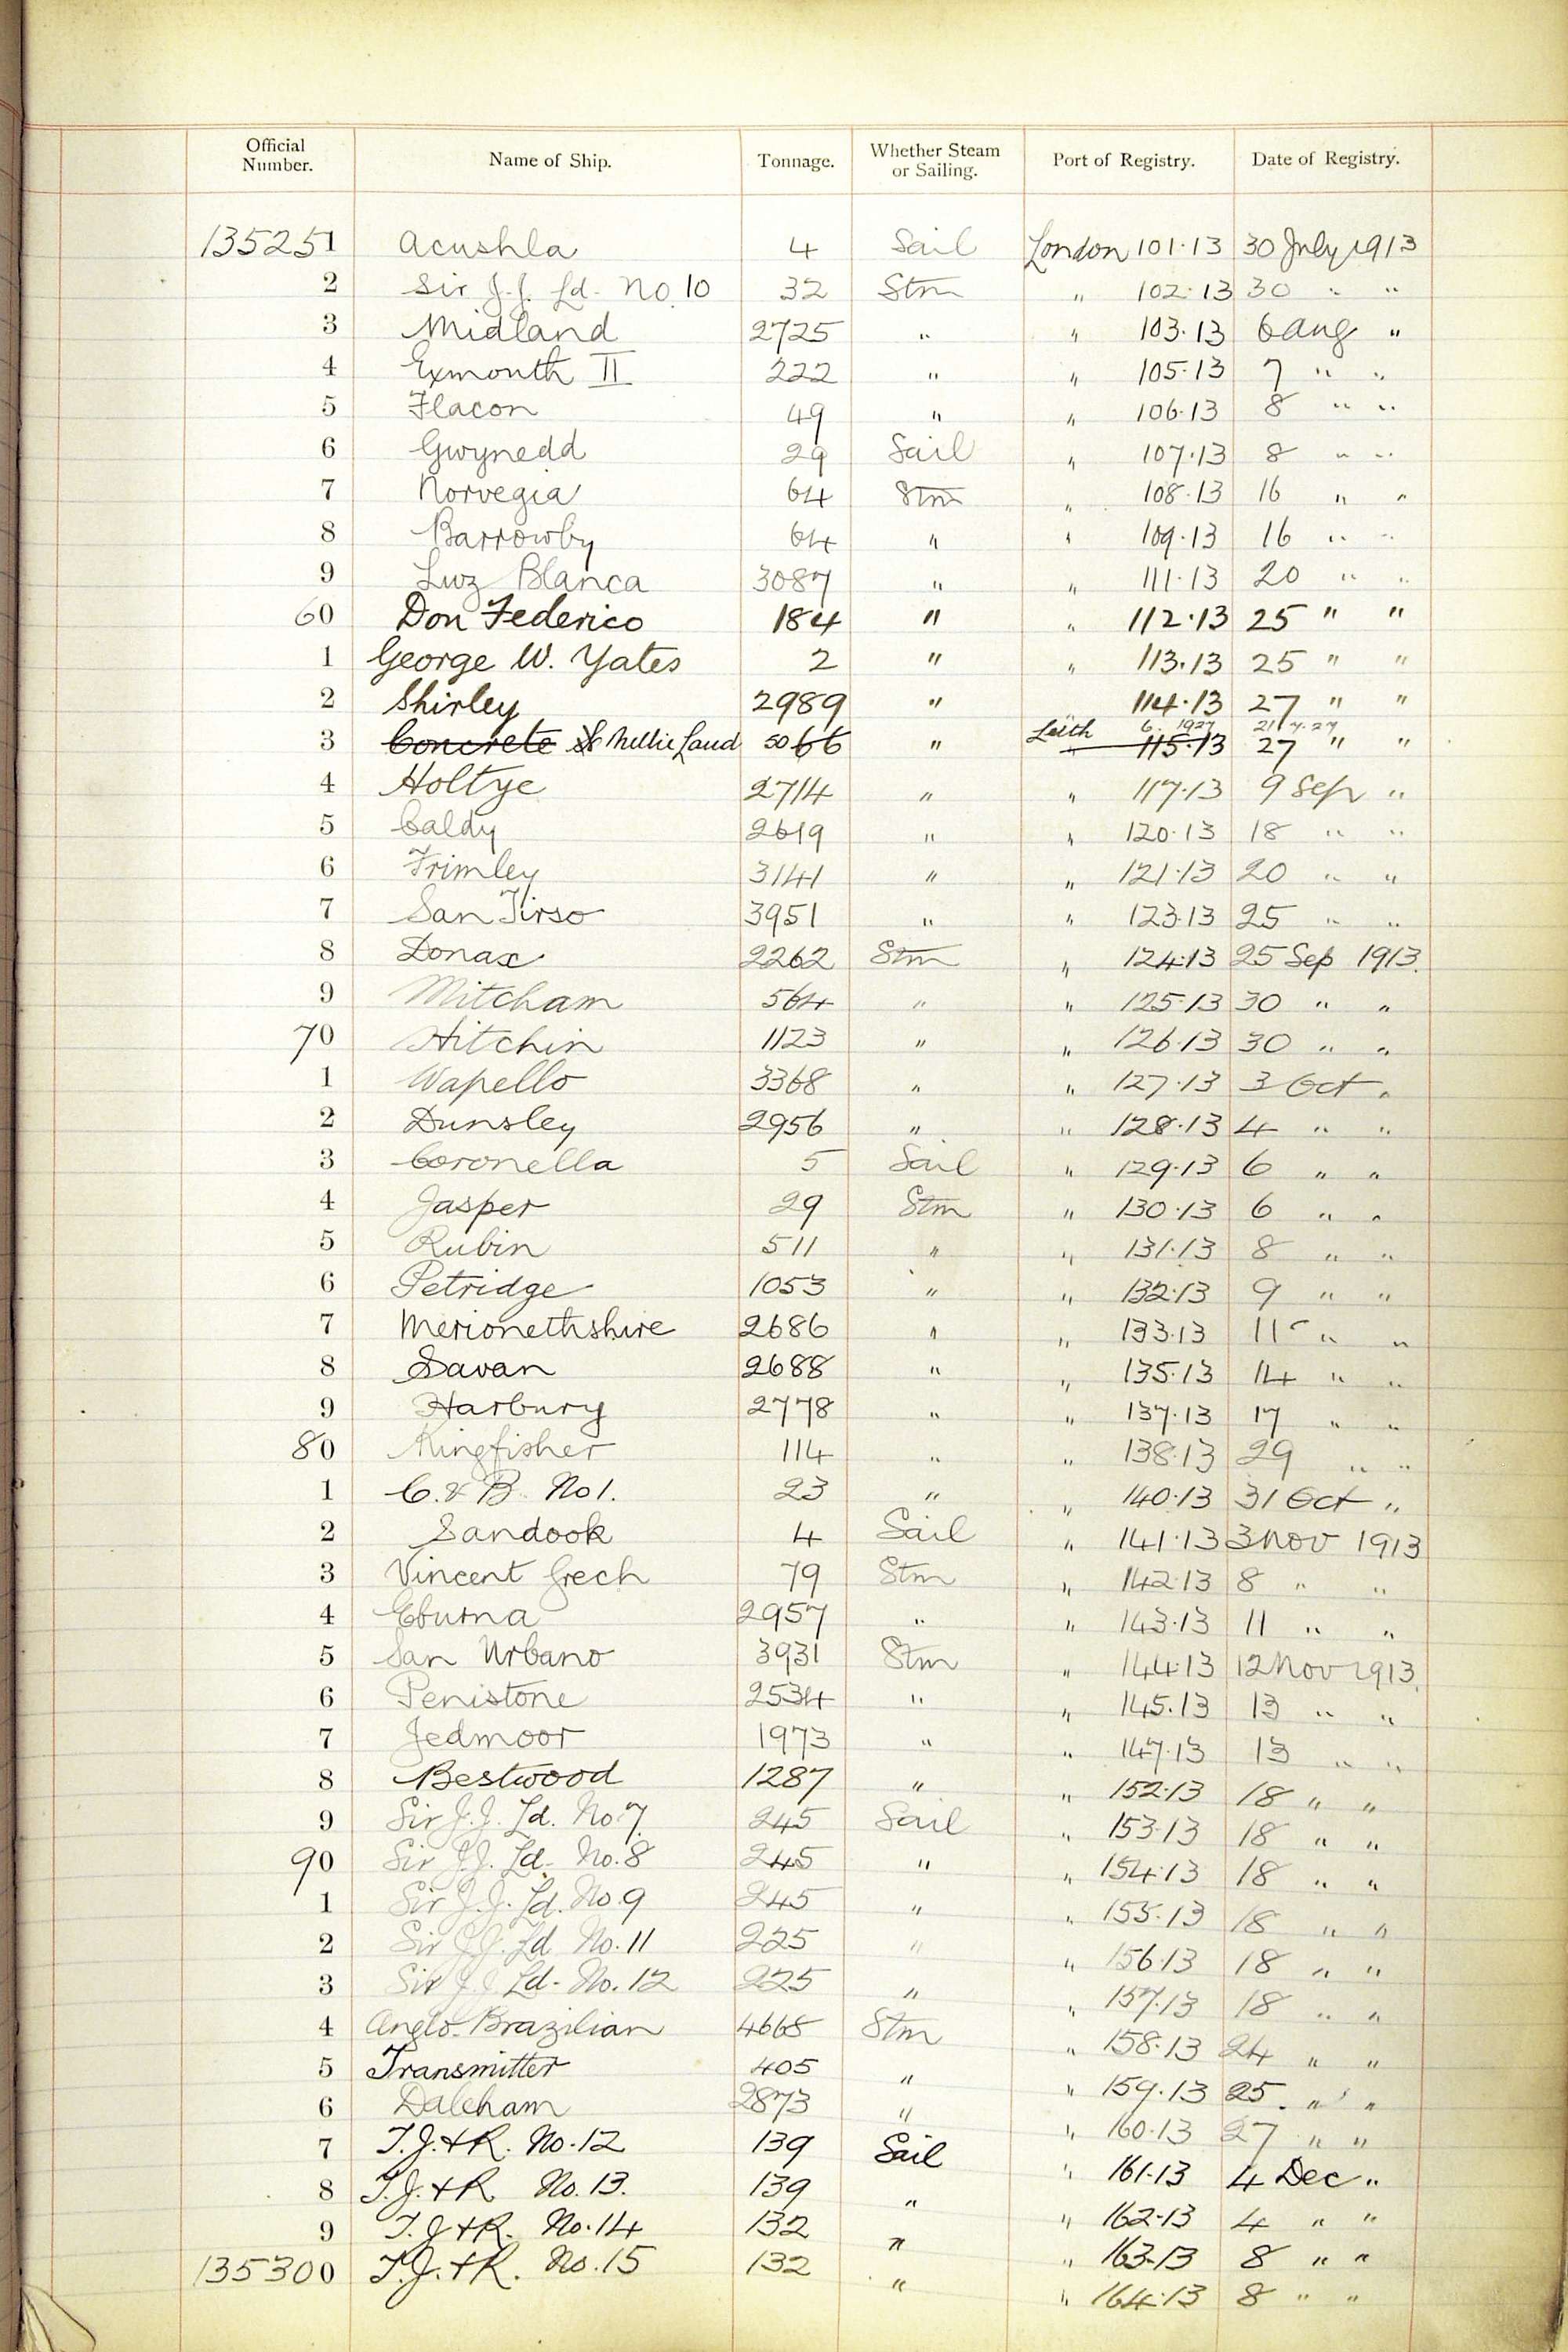 Official Number. Name of Ship. Tonnage. Whether Steam or Sailing. Port of Registry. Date of Registry.
135251 Acushla 4 Sail London 101.13 30 July 1913
2 Sir J.J. Ld. No. 10 32 Stm " 102.13 30 " "
3 Midland 2725 " " 103.13 6 Aug "
4 Exmouth II 222 " " 105.13 7 " "
5 Flacon 49 " " 106.13 8 " "
6 Gwynedd 29 Sail " 107.13 8 " "
7 Norvegia 64 Stm " 108.13 16 " "
8 Barrowby 64 " " 109.13 16 " "
9 Luz Blanca 3087 " " 111.13 20 " "
60 Don Federico 184 " " 112.13 25 " "
1 George W. Yates 2 " " 113.13 25 " "
2 Shirley 2989 " 114.13 27 " "
3 Concrete Nellie Laud 50 66 " Leith 6. 1927 21.7.27 " 115.13 27 " "
4 Holtye 2714 " " 117.13 9 Sep "
5 Caldy 2619 " " 120.13 18 " "
6 Frimley 3141 " " 121.13 20 " "
7 San Tirso 3951 " " 123.13 25 " "
8 Donax 2262 Stm " 124.13 25 Sep 1913.
9 Mitcham 564 " " 125.13 30 " "
70 Hitchin 1123 " " 126.13 30 " "
1 Wapello 3368 " " 127.13 3 Oct "
2 Dunsley 2956 " " 128.13 4 " "
3 Coronella 5 Sail " 129.13 6 " "
4 Jasper 29 Stm " 130.13 6 " "
5 Rubin 511 " " 131.13 8 " "
6 Petridge 1053 " " 132.13 9 " "
7 Merionethshire 2686 " " 133.13 11 " "
8 Savan 2688 " " 135.13 14 " "
9 Harbury 2778 " " 137.13 17 " "
80 Kingfisher 114 " " 138.13 29 " "
1 C. & B. No 1. 23 " " 140.13 31 Oct "
2 Sandook 4 Sail " 141.13 3 Nov 1913
3 Vincent Grech 79 Stm " 142.13 8 " "
4 Eburna 2957 " " 143.13 11 " "
5 San Urbano 3931 Stm " 144.13 12 Nov 1913.
6 Penistone 2534 " " 145.13 13 " "
7 Jedmoor 1973 " " 147.13 13 " "
8 Bestwood 1287 " " 152.13 18 " "
9 Sir J.J. Ld. No. 7 245 Sail " 153.13 18 " "
90 Sir J.J. Ld. No. 8 245 " " 154.13 18 " "
1 Sir J.J. Ld. No. 9 245 " " 155.13 18 " "
2 Sir J.J. Ld No. 11 225 " " 156.13 18 " "
3 Sir J.J. Ld. No. 12 225 " " 157.13 18 " "
4 Anglo-Brazilian 4665 Stm " 158.13 24 " "
5 Transmitter 405 " " 159.13 25. " "
6 Daleham 2873 " " 160.13 27 " "
7 T.J. & R. No. 12 139 Sail " 161.13 4 Dec "
8 T.J. & R No. 13. 139 " " 162.13 4 " "
9 T.J & R. No. 14 132 " " 163.13 8 " "
135300 T.J. & R. No. 15 132 " " 164.13 8 " "